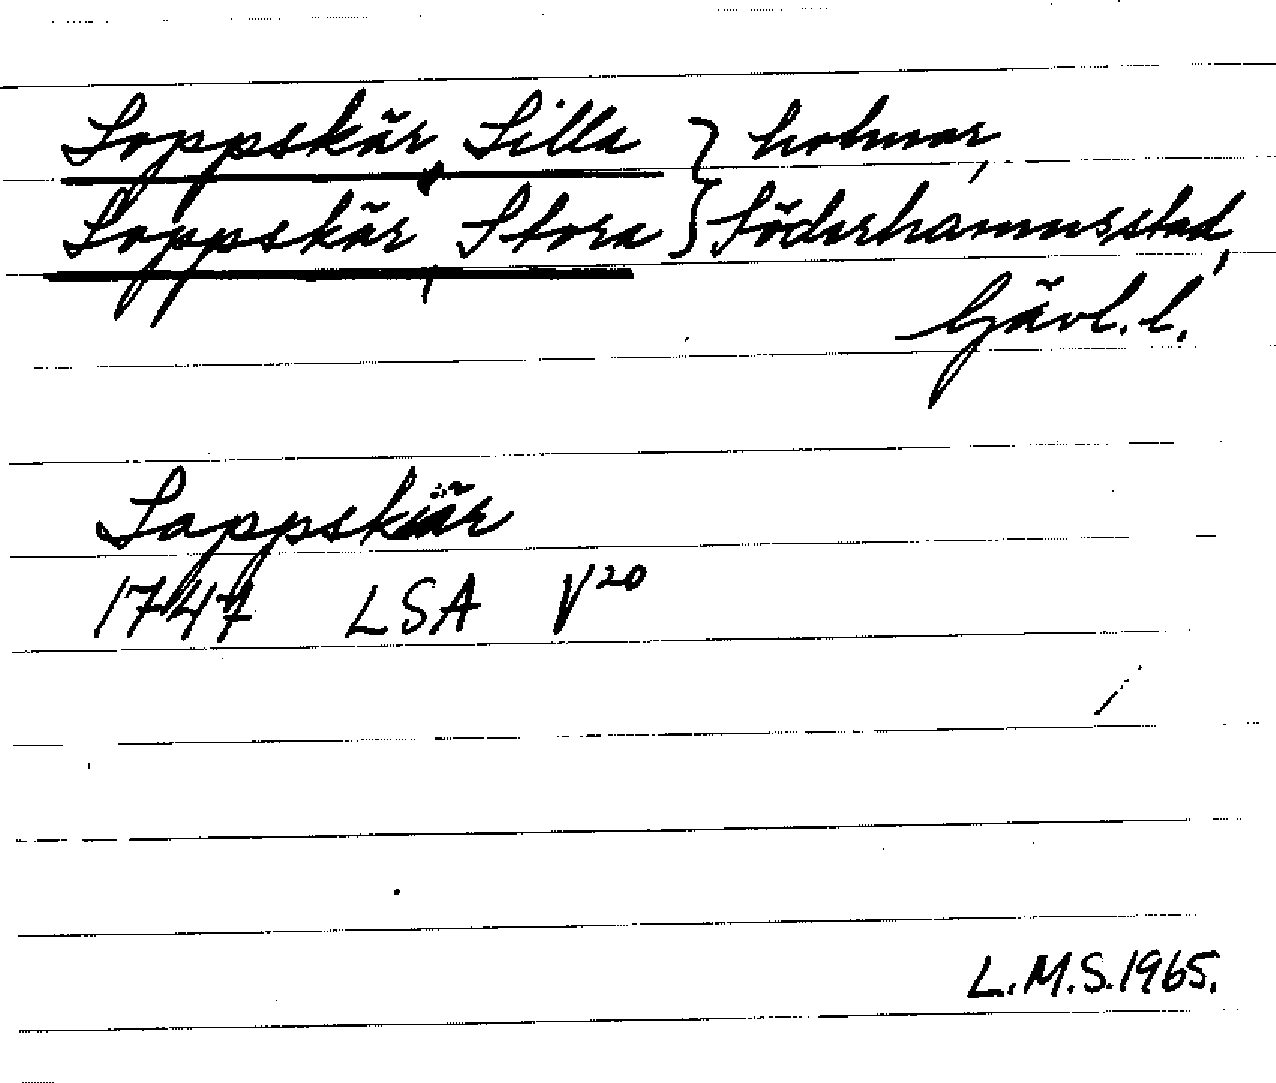 Loppskär, Lilla } holmar,
Loppskär, Stora } Söderhamns stad,
Gävl. l.
Lappskär
1747 LSA V20
L.M.S. 1965.